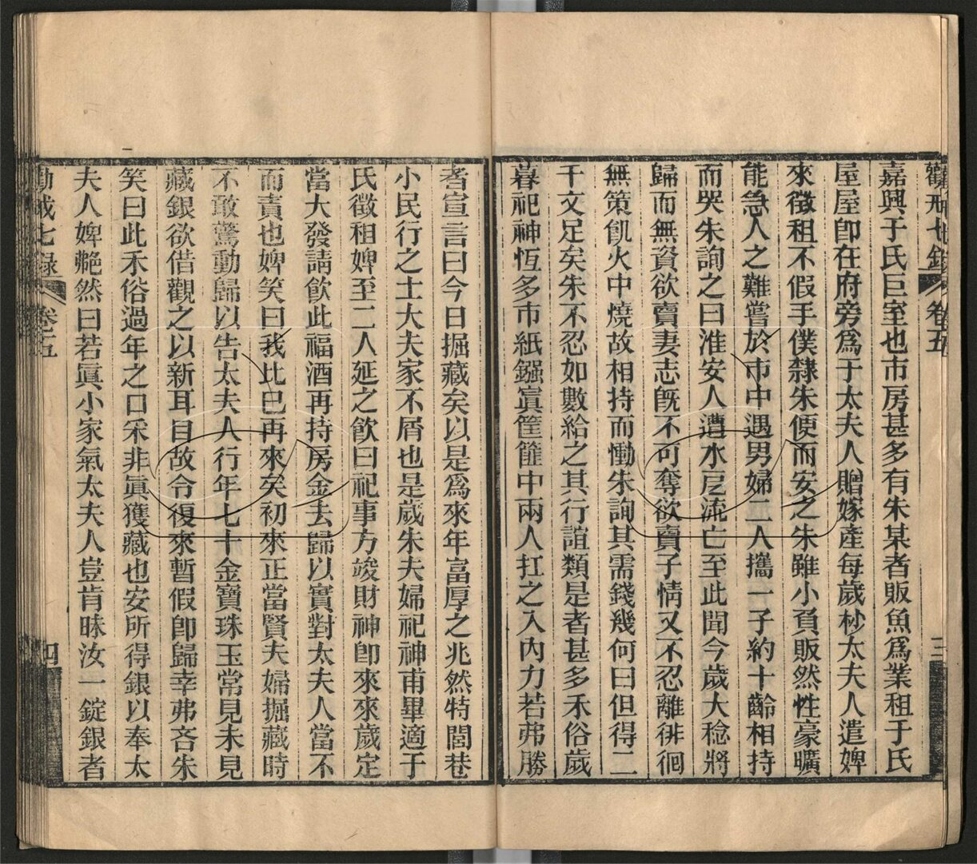 勸戒七錄 卷五 三
嘉興于氏巨室也市房甚多有朱某者販魚爲業租于氏
屋屋卽在府旁爲于太夫人贈嫁產每歲杪太夫人遣婢
來徵租不假手僕隸朱便而安之朱雖小負販然性豪曠
能急人之難嘗於市中遇男婦二人攜一子約十齡相持
而哭朱詢之曰淮安人遭水戹流亡至此聞今歲大稔將
歸而無貲欲賣妻志旣不可奪欲賣子情又不忍離徘徊
無策飢火中燒故相持而慟朱詢其需錢幾何曰但得二
千文足矣朱不忍如數給之其行誼類是者甚多禾俗歲
暮祀神恆多市紙鏹寘筐籮中兩人扛之入內力若弗勝
者宣言曰今日掘藏矣以是爲來年富厚之兆然特閭巷
小民行之士大夫家不屑也是歲朱夫婦祀神甫畢適于
氏徵租婢至二人延之飮曰祀事方竣財神卽來來歲定
當大發請飮此福酒再持房金去歸以實對太夫人當不
而責也婢笑曰我比已再來矣初來正當賢夫婦掘藏時
不敢驚動歸以告太夫人行年七十金寶珠玉常見未見
藏銀欲借觀之以新耳目故令復來暫假卽歸幸弗吝朱
笑曰此禾俗過年之口釆非眞獲藏也安所得銀以奉太
夫人婢艴然曰若眞小家氣太夫人豈肯昧汝一錠銀者
勸戒七錄 卷五 四